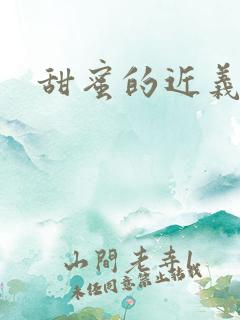 甜蜜的近義
山間老幸l
未经同意禁止转载